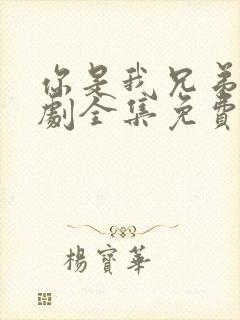 你是我兄弟
劇全集免費
楊寶華